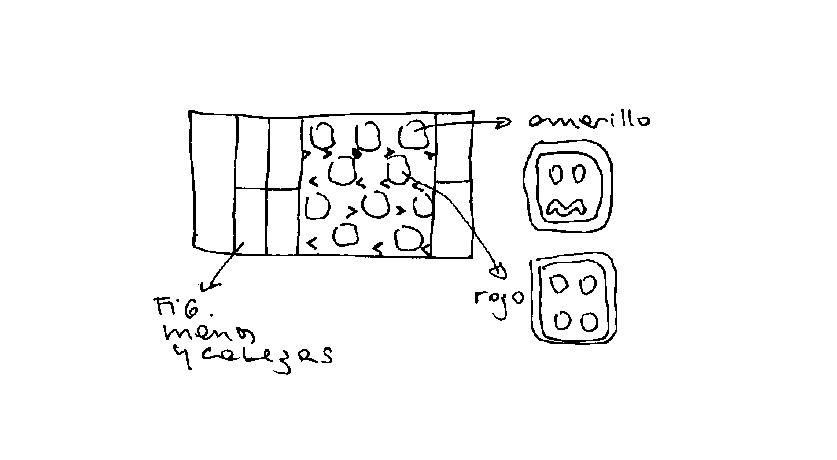 amarillo
rojo
FiG.
manos
y cabezas